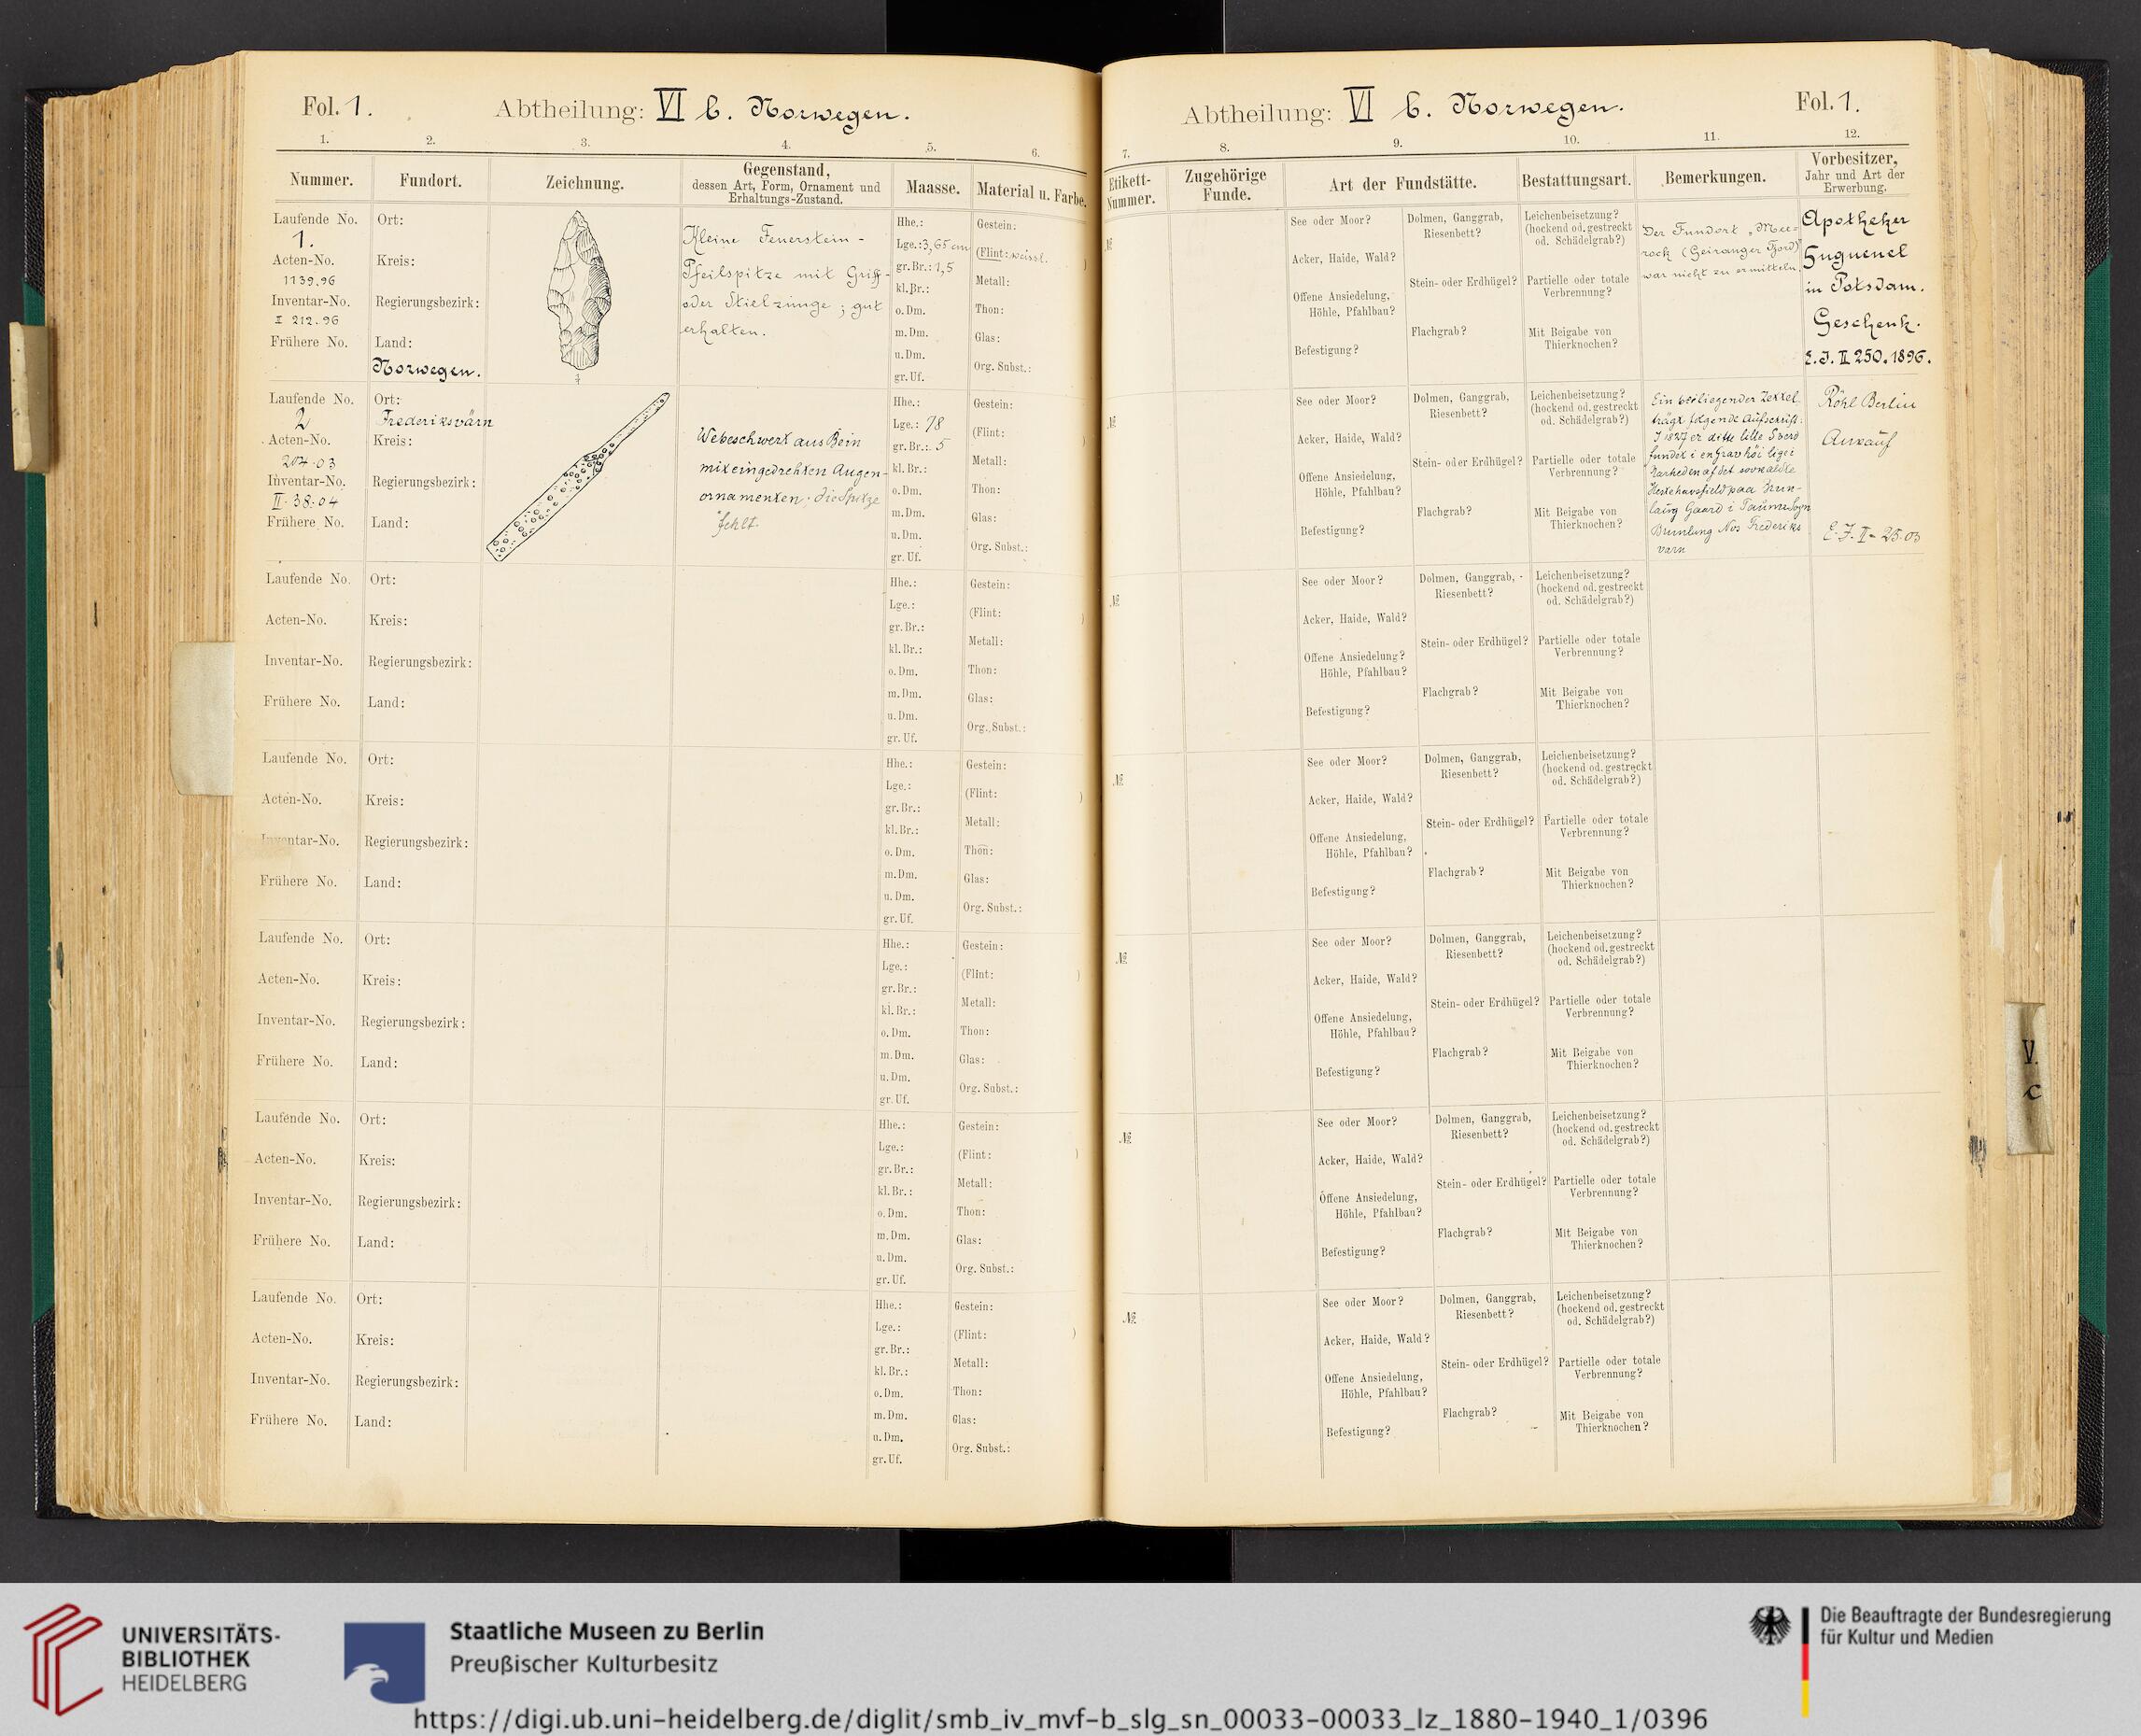 Fol. 1.
Abtheilung: VI b. Norwegen.
1. 2. 3. 4. 5. 6.
Nummer.
Fundort.
Zeichnung.
Gegenstand,
dessen Art, Form, Ornament und
Erhaltungs-Zustand.
Maasse.
Material u. Farbe.
Laufende No.
1.
Acten-No.
1139.96
Inventar-No.
I 212.96
Frühere No.
Ort:
Kreis:
Regierungsbezirk:
Land:
Norwegen.
1/1
Kleine Feuerstein-
Pfeilspitze mit Griff-
oder Stielzunge; gut
erhalten.
Hhe.:
Lge.: 3,65 cm
gr. Br.: 1,5
kl. Br.:
o. Dm.
m. Dm.
u. Dm.
gr. Uf.
Gestein:
(Flint: weissl. )
Metall:
Thon:
Glas:
Org. Subst.:
Laufende No.
2
Acten-No.
204.03
Inventar-No.
II. 38.04
Frühere No.
Ort:
Frederiksvärn
Kreis:
Regierungsbezirk:
Land:
Webeschwert aus Bein
mit eingedrehten Augen-
ornamenten; die Spitze
fehlt.
Hhe.:
Lge.: 78
gr. Br.: 5
kl. Br.:
o. Dm.
m. Dm.
u. Dm.
gr. Uf.
Gestein:
(Flint: )
Metall:
Thon:
Glas:
Org. Subst.:
Laufende No.
Acten-No.
Inventar-No.
Frühere No.
Ort:
Kreis:
Regierungsbezirk:
Land:
Hhe.:
Lge.:
gr. Br.:
kl. Br.:
o. Dm.
m. Dm.
u. Dm.
gr. Uf.
Gestein:
(Flint: )
Metall:
Thon:
Glas:
Org. Subst.:
Laufende No.
Acten-No.
Inventar-No.
Frühere No.
Ort:
Kreis:
Regierungsbezirk:
Land:
Hhe.:
Lge.:
gr. Br.:
kl. Br.:
o. Dm.
m. Dm.
u. Dm.
gr. Uf.
Gestein:
(Flint: )
Metall:
Thon:
Glas:
Org. Subst.:
Laufende No.
Acten-No.
Inventar-No.
Frühere No.
Ort:
Kreis:
Regierungsbezirk:
Land:
Hhe.:
Lge.:
gr. Br.:
kl. Br.:
o. Dm.
m. Dm.
u. Dm.
gr. Uf.
Gestein:
(Flint: )
Metall:
Thon:
Glas:
Org. Subst.:
Laufende No.
Acten-No.
Inventar-No.
Frühere No.
Ort:
Kreis:
Regierungsbezirk:
Land:
Hhe.:
Lge.:
gr. Br.:
kl. Br.:
o. Dm.
m. Dm.
u. Dm.
gr. Uf.
Gestein:
(Flint: )
Metall:
Thon:
Glas:
Org. Subst.:
Laufende No.
Acten-No.
Inventar-No.
Frühere No.
Ort:
Kreis:
Regierungsbezirk:
Land:
Hhe.:
Lge.:
gr. Br.:
kl. Br.:
o. Dm.
m. Dm.
u. Dm.
gr. Uf.
Gestein:
(Flint: )
Metall:
Thon:
Glas:
Org. Subst.:
Abtheilung: VI b. Norwegen.
Fol. 1.
7. 8. 9. 10. 11. 12.
Etikett-
Nummer.
Zugehörige
Funde.
Art der Fundstätte.
Bestattungsart.
Bemerkungen.
Vorbesitzer,
Jahr und Art der
Erwerbung.
№
See oder Moor?
Acker, Haide, Wald?
Offene Ansiedelung,
Höhle, Pfahlbau?
Befestigung?
Dolmen, Ganggrab,
Riesenbett?
Stein- oder Erdhügel?
Flachgrab?
Leichenbeisetzung?
(hockend od. gestreckt
od. Schädelgrab?)
Partielle oder totale
Verbrennung?
Mit Beigabe von
Thierknochen?
Der Fundort „Mee-
rock (Geiranger Fjord)"
war nicht zu ermitteln.
Apotheker
Huguenel
in Potsdam.
Geschenk.
E.J. II 250.1896.
№
See oder Moor?
Acker, Haide, Wald?
Offene Ansiedelung,
Höhle, Pfahlbau?
Befestigung?
Dolmen, Ganggrab,
Riesenbett?
Stein- oder Erdhügel?
Flachgrab?
Leichenbeisetzung?
(hockend od. gestreckt
od. Schädelgrab?)
Partielle oder totale
Verbrennung?
Mit Beigabe von
Thierknochen?
Ein beiliegender Zettel
trägt folgende Aufschrift:
I 1827 er dette lille Sverd
fundet i en Gravhöi ligei
Narheden af det
paa
Gaard i
Brunlung Nos Frederiks
värn
Röhl Berlin
Ankauf
E.J. II 25.03
№
See oder Moor?
Acker, Haide, Wald?
Offene Ansiedelung?
Höhle, Pfahlbau?
Befestigung?
Dolmen, Ganggrab,
Riesenbett?
Stein- oder Erdhügel?
Flachgrab?
Leichenbeisetzung?
(hockend od. gestreckt
od. Schädelgrab?)
Partielle oder totale
Verbrennung?
Mit Beigabe von
Thierknochen?
№
See oder Moor?
Acker, Haide, Wald?
Offene Ansiedelung,
Höhle, Pfahlbau?
Befestigung?
Dolmen, Ganggrab,
Riesenbett?
Stein- oder Erdhügel?
Flachgrab?
Leichenbeisetzung?
(hockend od. gestreckt
od. Schädelgrab?)
Partielle oder totale
Verbrennung?
Mit Beigabe von
Thierknochen?
№
See oder Moor?
Acker, Haide, Wald?
Offene Ansiedelung,
Höhle, Pfahlbau?
Befestigung?
Dolmen, Ganggrab,
Riesenbett?
Stein- oder Erdhügel?
Flachgrab?
Leichenbeisetzung?
(hockend od. gestreckt
od. Schädelgrab?)
Partielle oder totale
Verbrennung?
Mit Beigabe von
Thierknochen?
№
See oder Moor?
Acker, Haide, Wald?
Offene Ansiedelung,
Höhle, Pfahlbau?
Befestigung?
Dolmen, Ganggrab,
Riesenbett?
Stein- oder Erdhügel?
Flachgrab?
Leichenbeisetzung?
(hockend od. gestreckt
od. Schädelgrab?)
Partielle oder totale
Verbrennung?
Mit Beigabe von
Thierknochen?
№
See oder Moor?
Acker, Haide, Wald?
Offene Ansiedelung,
Höhle, Pfahlbau?
Befestigung?
Dolmen, Ganggrab,
Riesenbett?
Stein- oder Erdhügel?
Flachgrab?
Leichenbeisetzung?
(hockend od. gestreckt
od. Schädelgrab?)
Partielle oder totale
Verbrennung?
Mit Beigabe von
Thierknochen?
V.
c
UNIVERSITÄTS-
BIBLIOTHEK
HEIDELBERG
Staatliche Museen zu Berlin
Preußischer Kulturbesitz
Die Beauftragte der Bundesregierung
für Kultur und Medien
https://digi.ub.uni-heidelberg.de/diglit/smb_iv_mvf-b_slg_sn_00033-00033_lz_1880-1940_1/0396